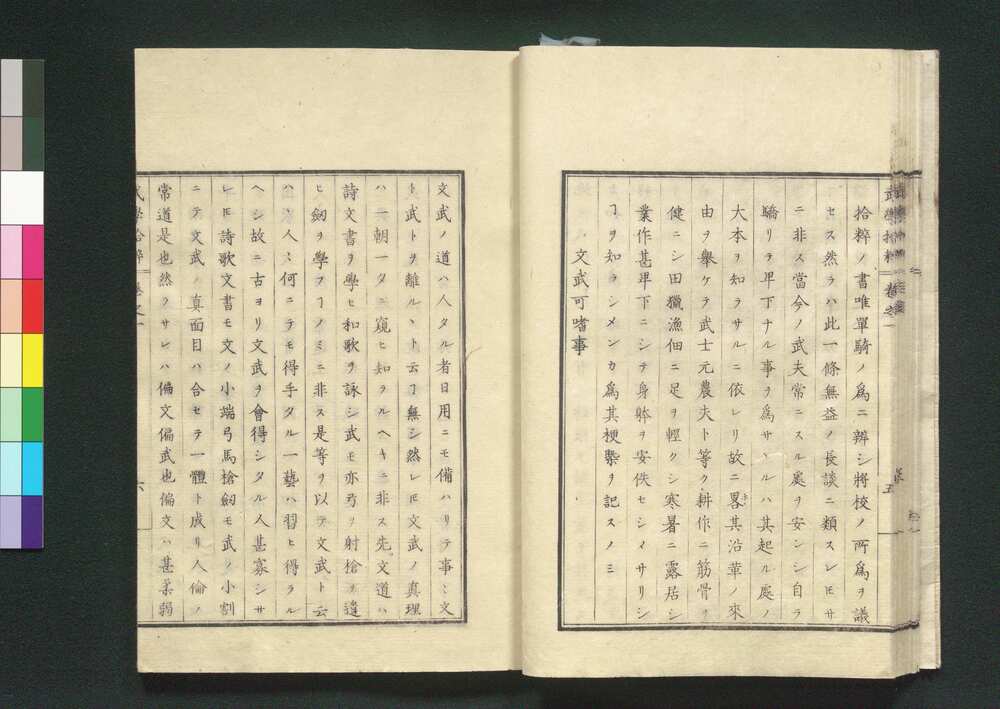 拾粹ノ書唯單騎ノ爲ニ辨シ將校ノ所爲ヲ議
セス然ラハ此一條無益ノ長談ニ類スレ𪜈サ
ニ非ス當今ノ武夫常ニスル處ヲ安ンシ自ラ
驕リテ卑下ナル事ヲ爲サヽルハ其起ル處ノ
大本ヲ知ラサルニ依レリ故ニ畧其沿革ノ來
由ヲ擧ケテ武士元農夫ト等ク耕作ニ筋骨ヲ
健ニシ田獵漁佃ニ足ヲ輕クシ寒暑ニ露居シ
業作甚卑下ニシテ身躰ヲ安佚セシメサリシ
ヿヲ知ラシメンカ爲其梗槩ヲ記スノミ
文武可嗜事
文武ノ道ハ人タル者日用ニモ備ハリテ事〻文
ト武トヲ離ルヽト云ヿ無シ然レ𪜈文武ノ真理
ハ一朝一タニ窺ヒ知ラルヘキニ非ス先文道ハ
詩文書ヲ學ヒ和歌ヲ詠シ武モ亦弓ヲ射槍ヲ遣
ヒ劔ヲ學フヿノミニ非ス是等ヲ以テ文武ト云
ハ人〻何ニテモ得手タル一藝ハ習ヒ得ラル
ヘシ故ニ古ヨリ文武ヲ會得シタル人甚寡シサ
レ𪜈詩歌文書モ文ノ小端弓馬槍劔モ武ノ小割
ニテ文武ノ真面目ハ合セテ一體ト成リ人倫ノ
常道是也然ラサレハ偏文偏武也偏文ハ甚柔弱
武學拾粹 卷之一 六